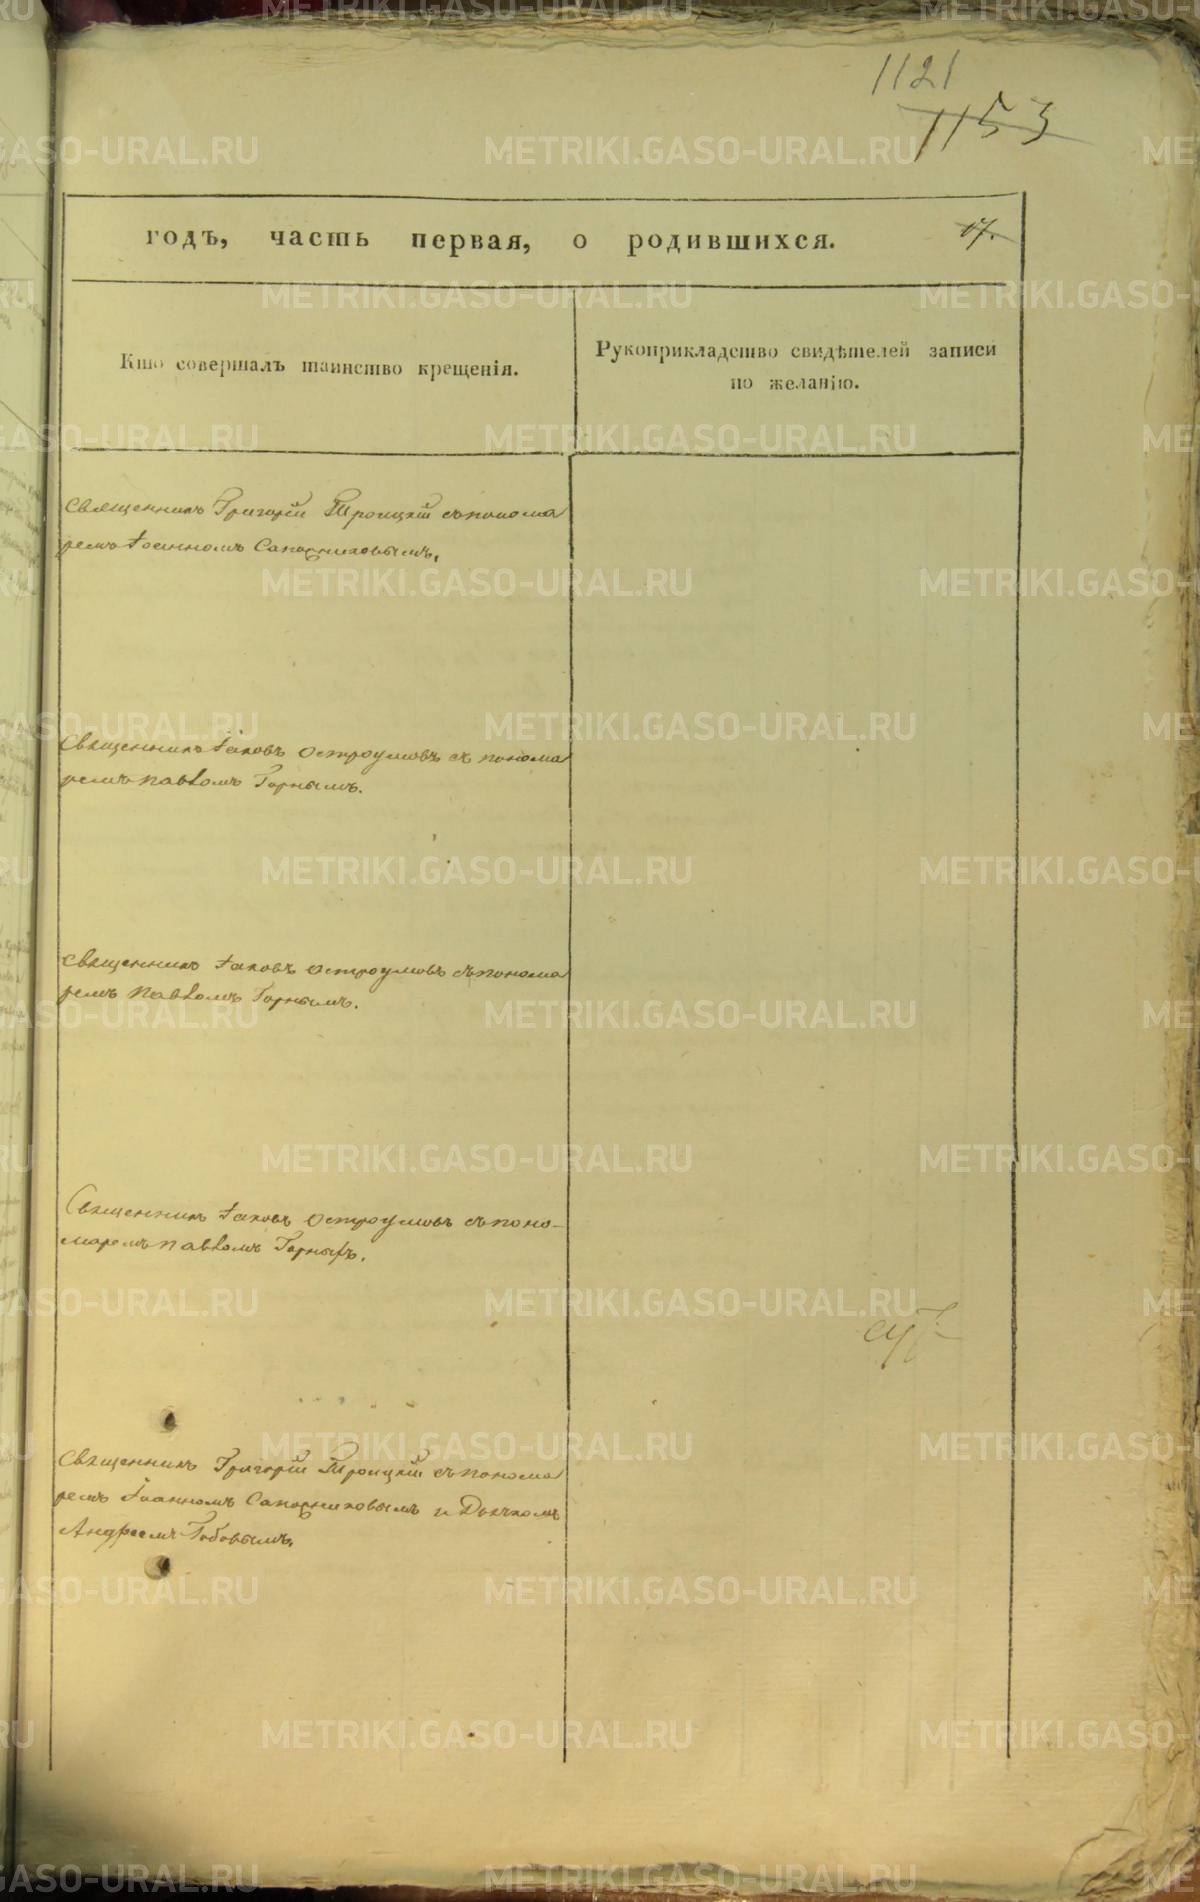 1121
1153
годъ, часть первая, о родившихся. 17.
Кто совершалъ таинство крещенія.
Рукоприкладство свидѣтелей записи
по желанію.
Священникъ Григорій Троицкій съ понома
ремъ Іоанномъ Сапожниковымъ.
Священникъ Іаковъ Остроумовъ съ понома
ремъ Павломъ Горнымъ.
Священникъ Іаковъ Остроумовъ съ понома
ремъ Павломъ Горнымъ.
Священникъ Іаковъ Остроумовъ съ поно-
маремъ Павломъ Горныхъ.
Священникъ Григорій Троицкій съ понома
ремъ Іоанномъ Сапожниковымъ и Дьячкомъ
Андреемъ
METRIKI.GASO-URAL.RU